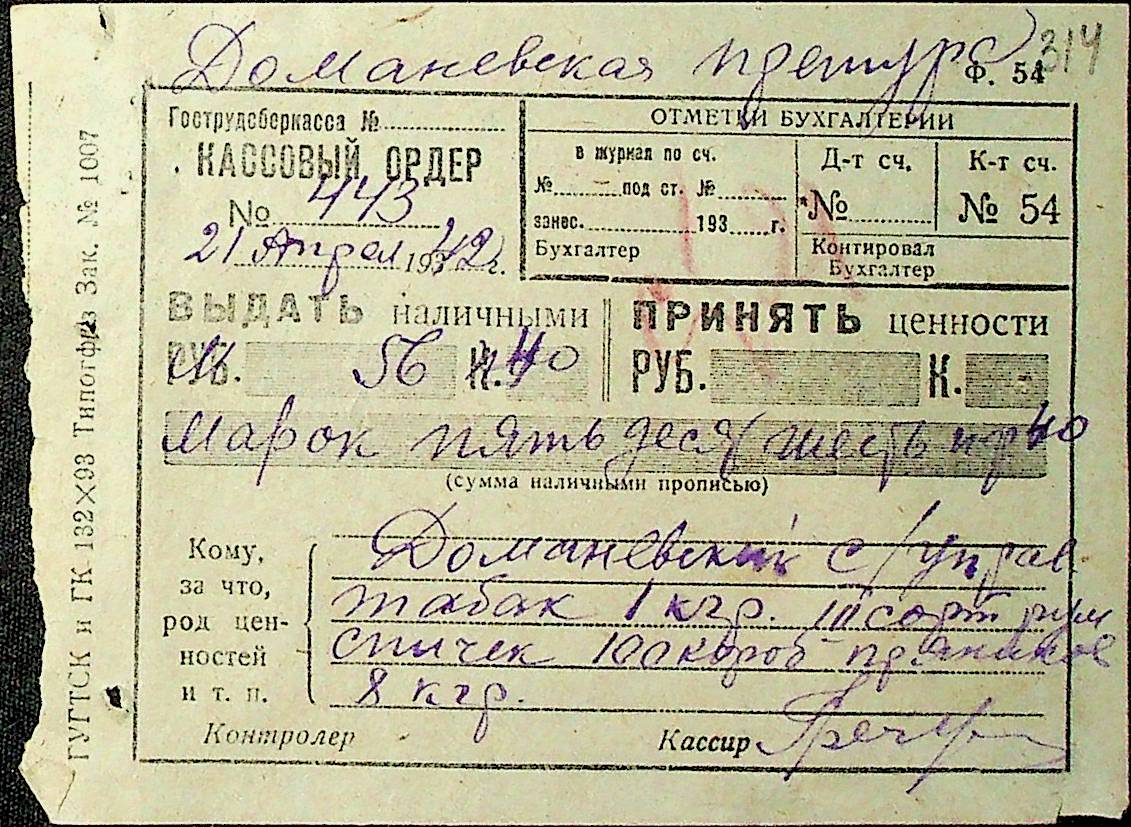 Доманевская претура 314
Ф. 54
Гострудсберкасса №
КАССОВЫЙ ОРДЕР
№ 443
21 Апрел 1942 г.
ОТМЕТКИ БУХГАЛТЕРИИ
в журнал по сч.
№ под ст. №
занес. 193 г.
Бухгалтер
Д-т сч.
№
К-т сч.
№ 54
Контировал
Бухгалтер
ВЫДАТЬ наличными
РУБ. 56 К. 40
ПРИНЯТЬ ценности
РУБ. К.
марок пятьдесят шесть 40
(сумма наличными прописью)
Кому,
за что,
род цен-
ностей
и т. п.
Доманевский с/управ
табак 1 кгр. III сорт рум
спичек 100 короб пряников
8 кгр.
Контролер
Кассир
ГУГТСК и ГК 132×93 Типогф/з Зак. № 1007